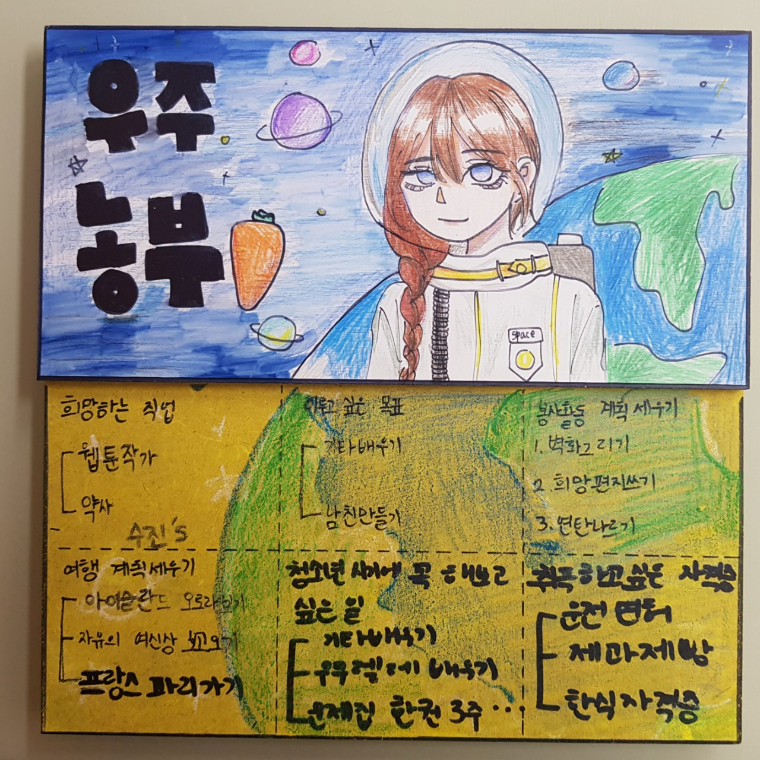 우주
농부
space
희망하는 직업
웹툰작가
약사
수진's
이루고 싶은 목표
기타배우기
남친만들기
봉사활동 계획 세우기
1. 벽화그리기
2. 희망편지쓰기
3. 연탄나르기
여행 계획세우기
아이슬란드 오로라보기
자유의 여신상 보고오기
프랑스 파리가기
청소년 시기에 꼭 해보고
싶은 일
기타배우기
우쿠렐레 배우기
문제집 한권 3주...
취득하고싶은 자격증
운전면허
제과제빵
한식자격증